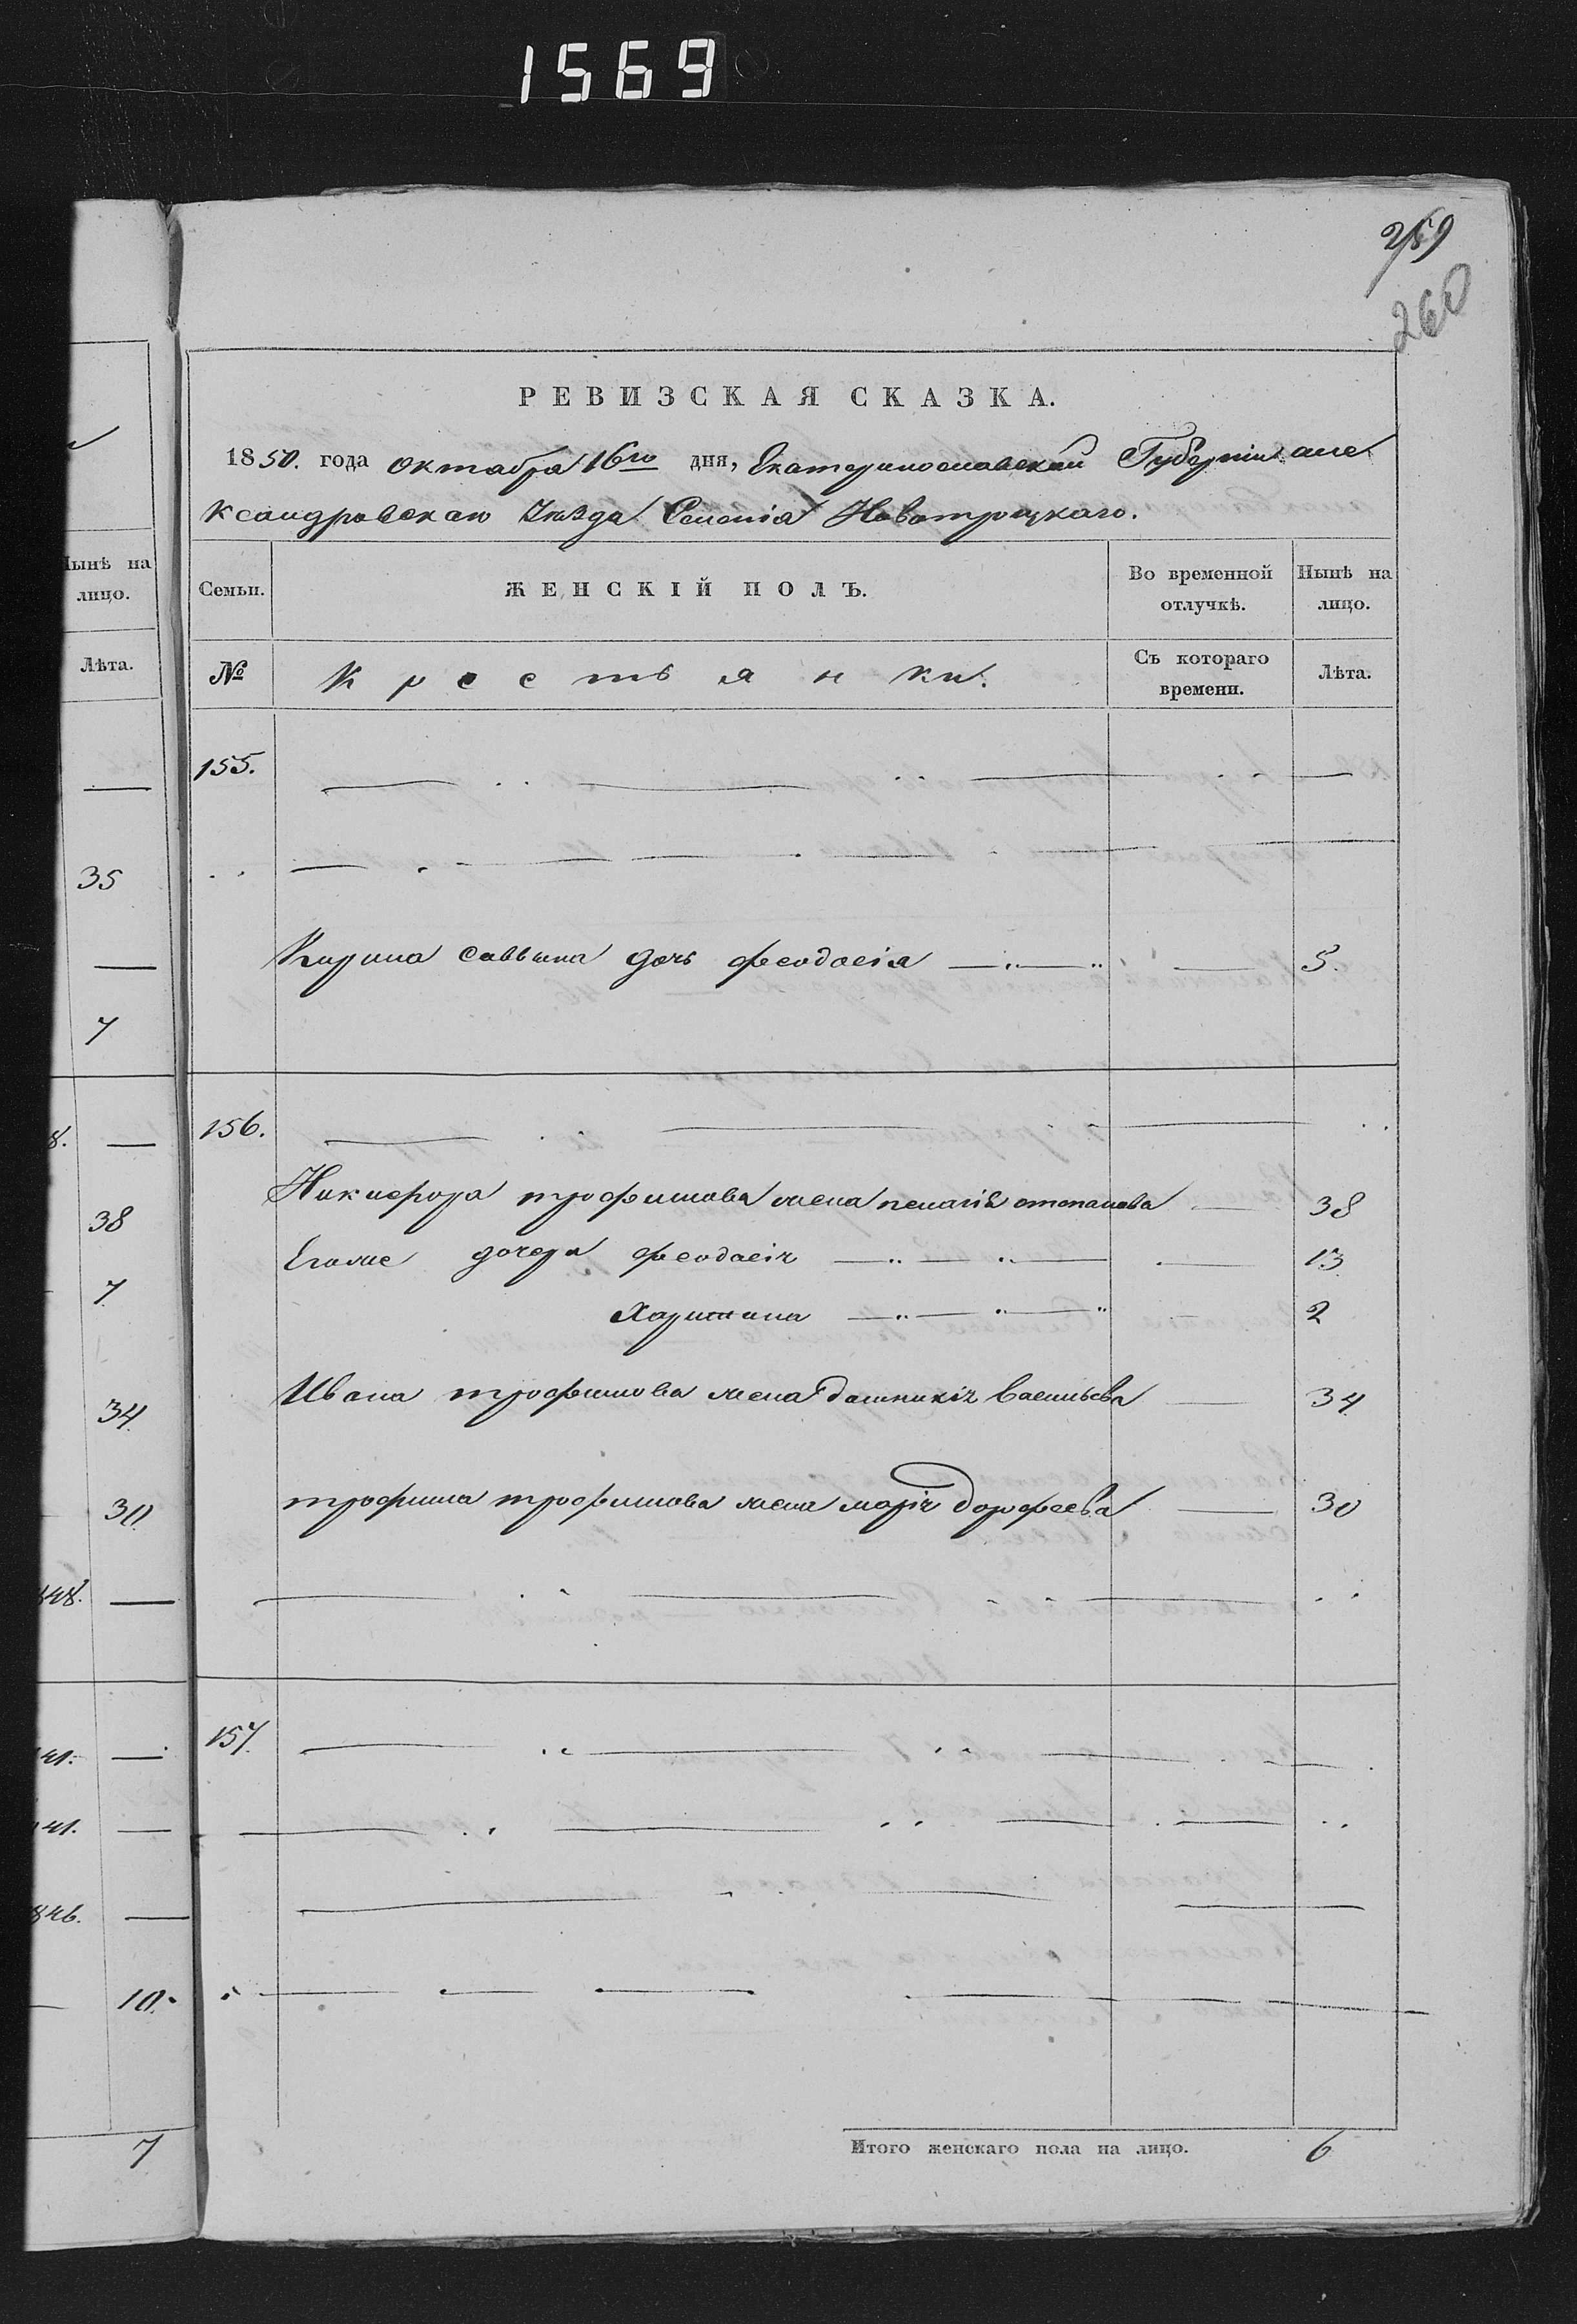 1569
259
260
РЕВИЗСКАЯ СКАЗКА.
1850. года октабра 16го дня, Екатеринославской Губерніи але
ксандровскаго Уѣзда Селенія Новотроцкаго.
Нынѣ на лицо.
Лѣта.
35
7
8.
38
7
34
30
848.
41.
41.
846.
10.
7
Семьи. ЖЕНСКІЙ ПОЛЪ. Во временной отлучкѣ. Нынѣ на лицо.
№ Крестьянки. Съ котораго времени. Лѣта.
155.
Кирила саввина дочь феодосія 5.
156.
Никифора трофимова жена пелагія степанова 38
Егоже дочери феодосія 13
Харитина 2
Ивана трофимова жена домникія Васильева 34
трофима трофимова жена марія дорофеева 30
157.
Итого женскаго пола на лицо. 6